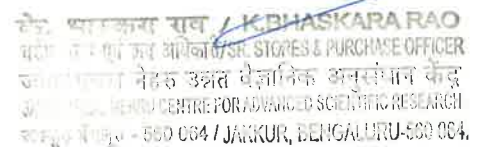 के. भास्करा राव / K.BHASKARA RAO
एवं क्रय /SR. STORES & PURCHASE OFFICER
नेहरु उन्नत वैज्ञानिक अनुसंधान केंद्र
NEHRU CENTRE FOR ADVANCED SCIENTIFIC RESEARCH
- 560 064 / JAKKUR, BENGALURU-560 064.